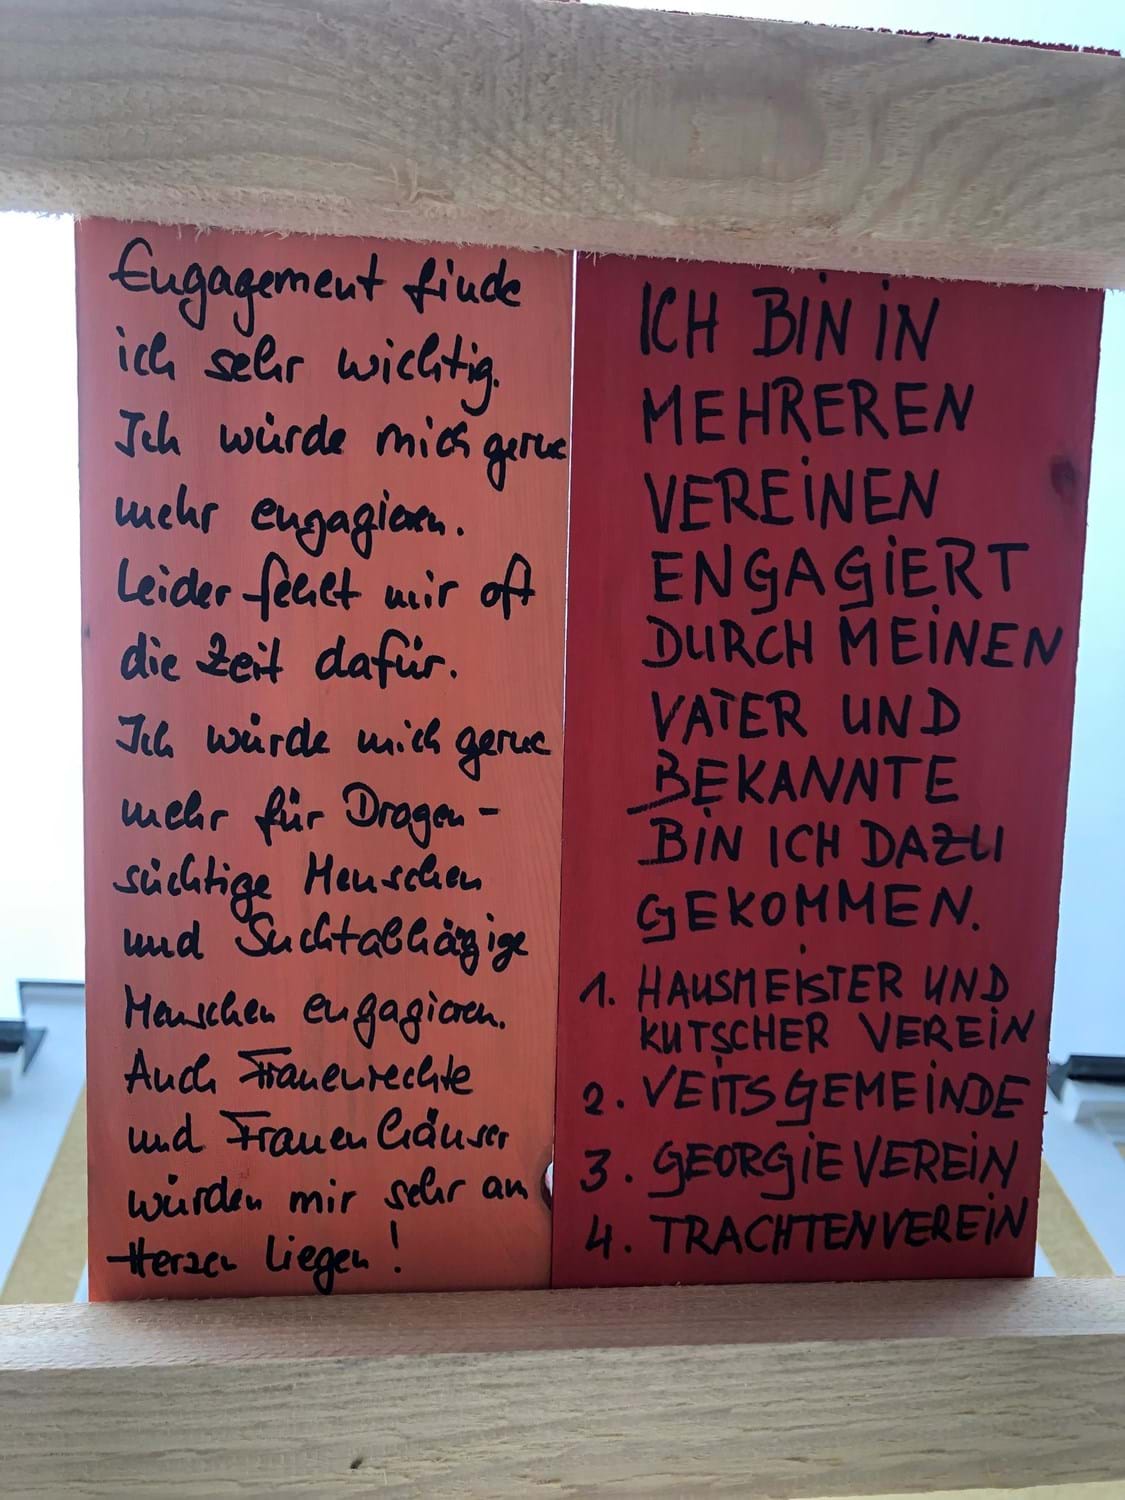 Engagement finde
ich sehr wichtig.
Ich würde mich gerne
mehr engagieren.
Leider fehlt mir oft
die Zeit dafür.
Ich würde mich gerne
mehr für Drogen-
süchtige Menschen
und Suchtabhägige
Menschen engagieren.
Auch Frauenrechte
und Frauenhäuser
würden mir sehr am
Herzen liegen!
ICH BIN IN
MEHREREN
VEREINEN
ENGAGIERT
DURCH MEINEN
VATER UND
BEKANNTE
BIN ICH DAZU
GEKOMMEN.
1. HAUSMEISTER UND
KUTSCHER VEREIN
2. VEITSGEMEINDE
3. GEORGIEVEREIN
4. TRACHTENVEREIN